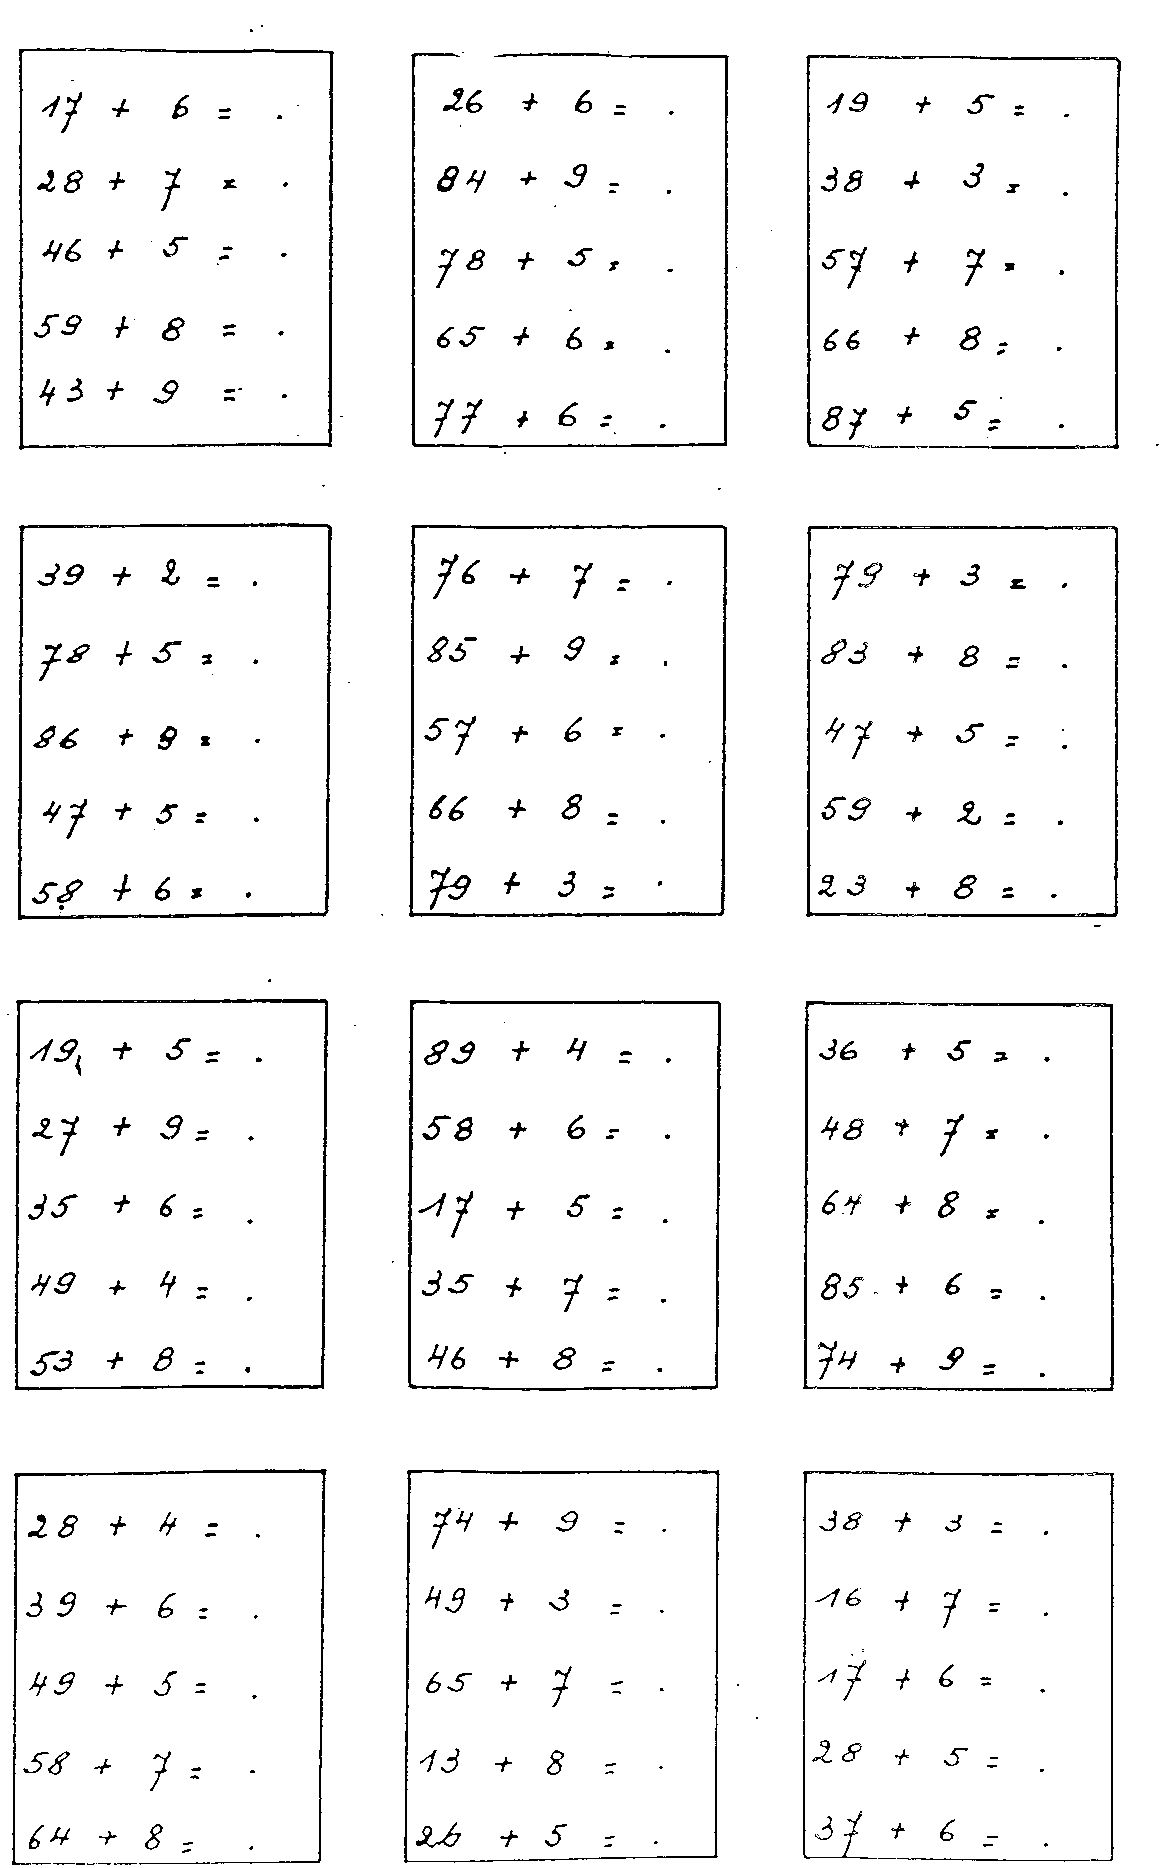 17 + 6 = .
28 + 7 = .
46 + 5 = .
59 + 8 = .
43 + 9 = .
26 + 6 = .
84 + 9 = .
78 + 5 = .
65 + 6 = .
77 + 6 = .
19 + 5 = .
38 + 3 = .
57 + 7 = .
66 + 8 = .
87 + 5 = .
39 + 2 = .
78 + 5 = .
86 + 9 = .
47 + 5 = .
58 + 6 = .
76 + 7 = .
85 + 9 = .
57 + 6 = .
66 + 8 = .
79 + 3 = .
79 + 3 = .
83 + 8 = .
47 + 5 = .
59 + 2 = .
23 + 8 = .
19 + 5 = .
27 + 9 = .
35 + 6 = .
49 + 4 = .
53 + 8 = .
89 + 4 = .
58 + 6 = .
17 + 5 = .
35 + 7 = .
46 + 8 = .
36 + 5 = .
48 + 7 = .
64 + 8 = .
85 + 6 = .
74 + 9 = .
28 + 4 = .
39 + 6 = .
49 + 5 = .
58 + 7 = .
64 + 8 = .
74 + 9 = .
49 + 3 = .
65 + 7 = .
13 + 8 = .
26 + 5 = .
38 + 3 = .
16 + 7 = .
17 + 6 = .
28 + 5 = .
37 + 6 = .